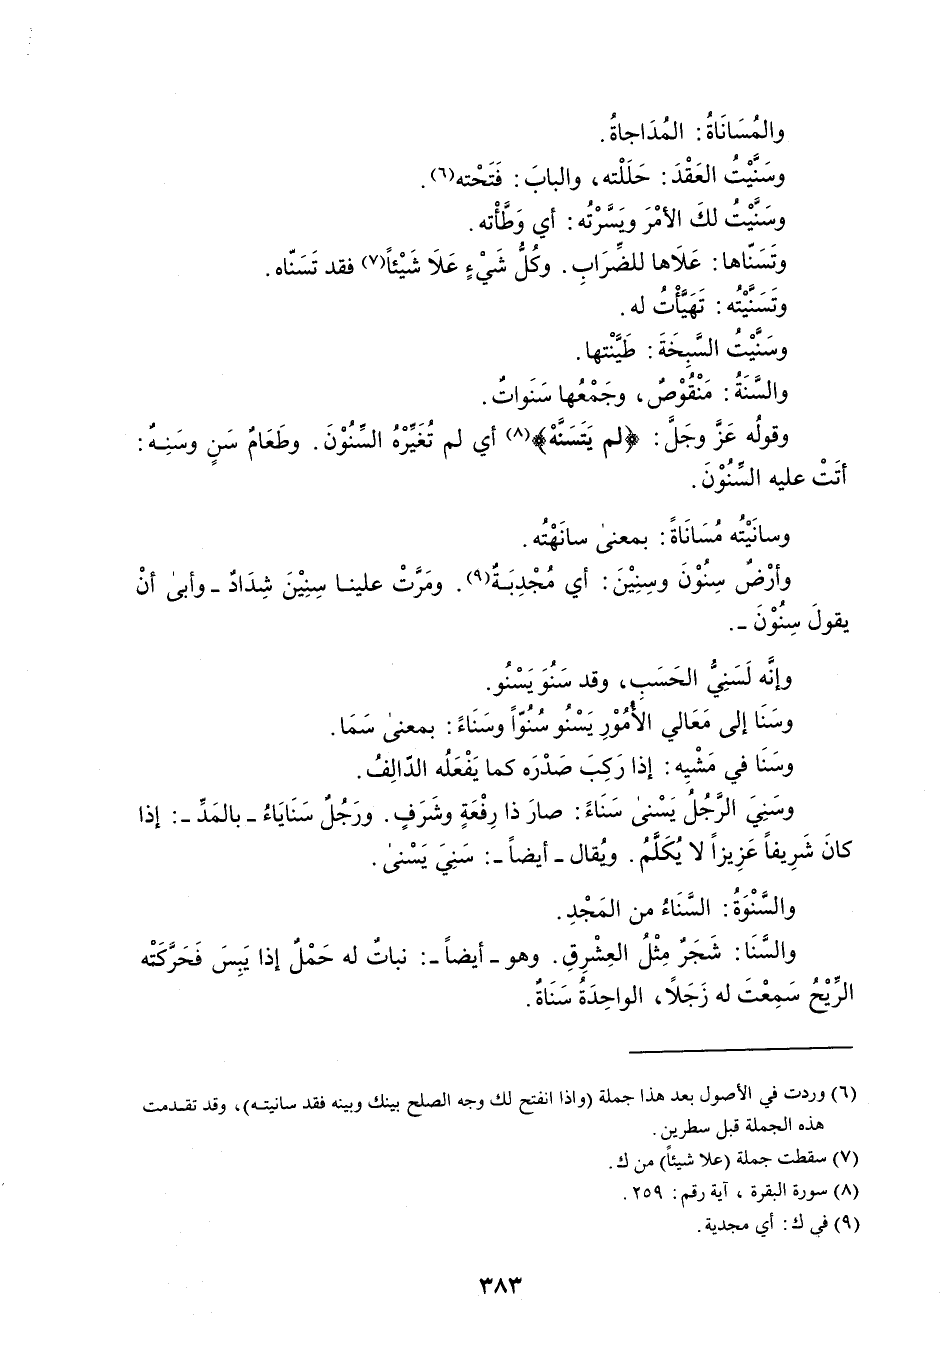 والمُسَانَاةُ: المُدَاجاةُ.
وسَنَّيْتُ العَقْدَ: حَلَلْته، والبابَ: فَتَحْته(٦).
وسَنَّيْتُ لكَ الأمْرَ ويَسَّرْتُه: أي وَطَّأْته.
وتَسَنّاها: عَلَاها للضِّرَابِ. وكُلُّ شَيْءٍ عَلَا شَيْئاً(٧) فقد تَسَنّاه.
وتَسَنَّيْتُه: تَهَيَّأْتُ له.
وسَنَّيْتُ السَّبِخَةَ: طَيَّنْتها.
والسَّنَةُ: مَنْقُوْصٌ، وجَمْعُها سَنَواتٌ.
وقولُه عَزَّ وجَلَّ: ﴿لم يَتَسَنَّهْ﴾(٨) أي لم تُغَيِّرْهُ السِّنُوْنَ. وطَعَامٌ سَنٍ وسَنِهٌ:
أتَتْ عليه السِّنُوْنَ.
وسانَيْتُه مُسَانَاةً: بمعنىٰ سانَهْتُه.
وأرْضٌ سِنُوْنَ وسِنِيْنَ: أي مُجْدِبَةٌ(٩). ومَرَّتْ علينا سِنِيْنَ شِدَادٌ ـ وأبىٰ أنْ
يقولَ سِنُوْنَ ـ.
وإنَّه لَسَنِيُّ الحَسَبِ، وقد سَنُوَ يَسْنُو.
وسَنَا إلى مَعَالي الأُمُوْرِ يَسْنُو سُنُوّاً وسَنَاءً: بمعنىٰ سَمَا.
وسَنَا في مَشْيِه: إذا رَكِبَ صَدْرَه كما يَفْعَلُه الدّالِفُ.
وسَنِيَ الرَّجُلُ يَسْنىٰ سَنَاءً: صارَ ذا رِفْعَةٍ وشَرَفٍ. ورَجُلٌ سَنَايَاءُ ـ بالمَدِّ ـ: إذا
كانَ شَرِيفاً عَزِيزاً لا يُكَلَّمُ. ويُقال ـ أيضاً ـ: سَنِيَ يَسْنىٰ.
والسَّنْوَةُ: السَّنَاءُ من المَجْدِ.
والسَّنَا: شَجَرٌ مِثْلُ العِشْرِقِ. وهو ـ أيضاً ـ: نباتٌ له حَمْلٌ إذا يَبِسَ فَحَرَّكَتْه
الرِّيْحُ سَمِعْتَ له زَجَلاً، الواحِدَةُ سَنَاةٌ.
(٦) وردت في الأصول بعد هذا جملة (واذا انفتح لك وجه الصلح بينك وبينه فقد سانيته)، وقد تقدمت
هذه الجملة قبل سطرين.
(٧) سقطت جملة (علا شيئاً) من ك.
(٨) سورة البقرة ، آية رقم: ٢٥٩ .
(٩) في ك: أي مجدية.
٣٨٣